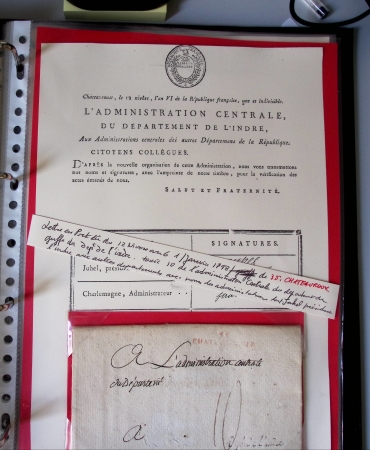 Chateauroux, le 12 nivôse, l'an VI de la République française, une et indivisible.
L'ADMINISTRATION CENTRALE,
DU DÉPARTEMENT DE L'INDRE,
Aux Administrations centrales des autres Départemens de la République.
CITOYENS COLLÈGUES.
D'APRÈS la nouvelle organisation de cette Administration, nous vous transmettons
nos noms et signatures, avec l'empreinte de notre timbre, pour la vérification des
actes émanés de nous.
SALUT ET FRATERNITÉ.
SIGNATURES.
Lettre en Port dû du 12 nivose 1 Janvier 1798 de 35. CHATEAUROUX
griffe du Dept de l'indre. de l'administration Centrale du département de
l'indre aux autres départements avec noms des administrateurs Jubel président
Jubel, président
Chalumagne, Administrateur
CHAT
A L'administration centrale
du département
A